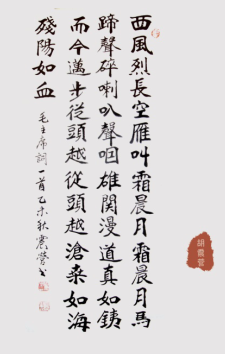 西風烈長空雁叫霜晨月霜晨月馬
蹄聲碎喇叭聲咽雄関漫道真如銕
而今邁步從頭越從頭越滄桑如海
殘陽如血
毛主席詞一首乙未秋震營書